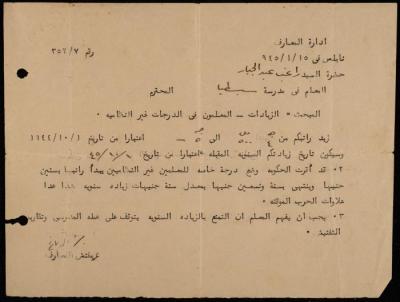 ادارة المعارف
نابلس في ١٥/١/٩٤٥
رقم ٣٥٢/٧
حضرة السيد راغب عبد الجبار
المعلم في مدرسة المحترم
المبحث - الزيادات - المعلمون في الدرجات غير النظاميه .
زيد راتبكم من الى اعتبارا من تاريخ ١٩٤٤/١٠/١
وسيكون تاريخ زيادتكم السنويه المقبله اعتبارا من تاريخ
٢٠ قد أقرت الحكومه وضع درجة خاصه للمعلمين غير النظاميين يبدأ راتبها بستين
جنيها وينتهي بستة وتسعين جنيها بمعدل ستة جنيهات زياده سنويه هذا عدا
علاوات الحرب المؤقته .
٣٠ يجب ان يفهم المعلم ان التمتع بالزياده السنويه يتوقف على عمله المدرسي وتقارير
التفتيش .
مفتش المعارف